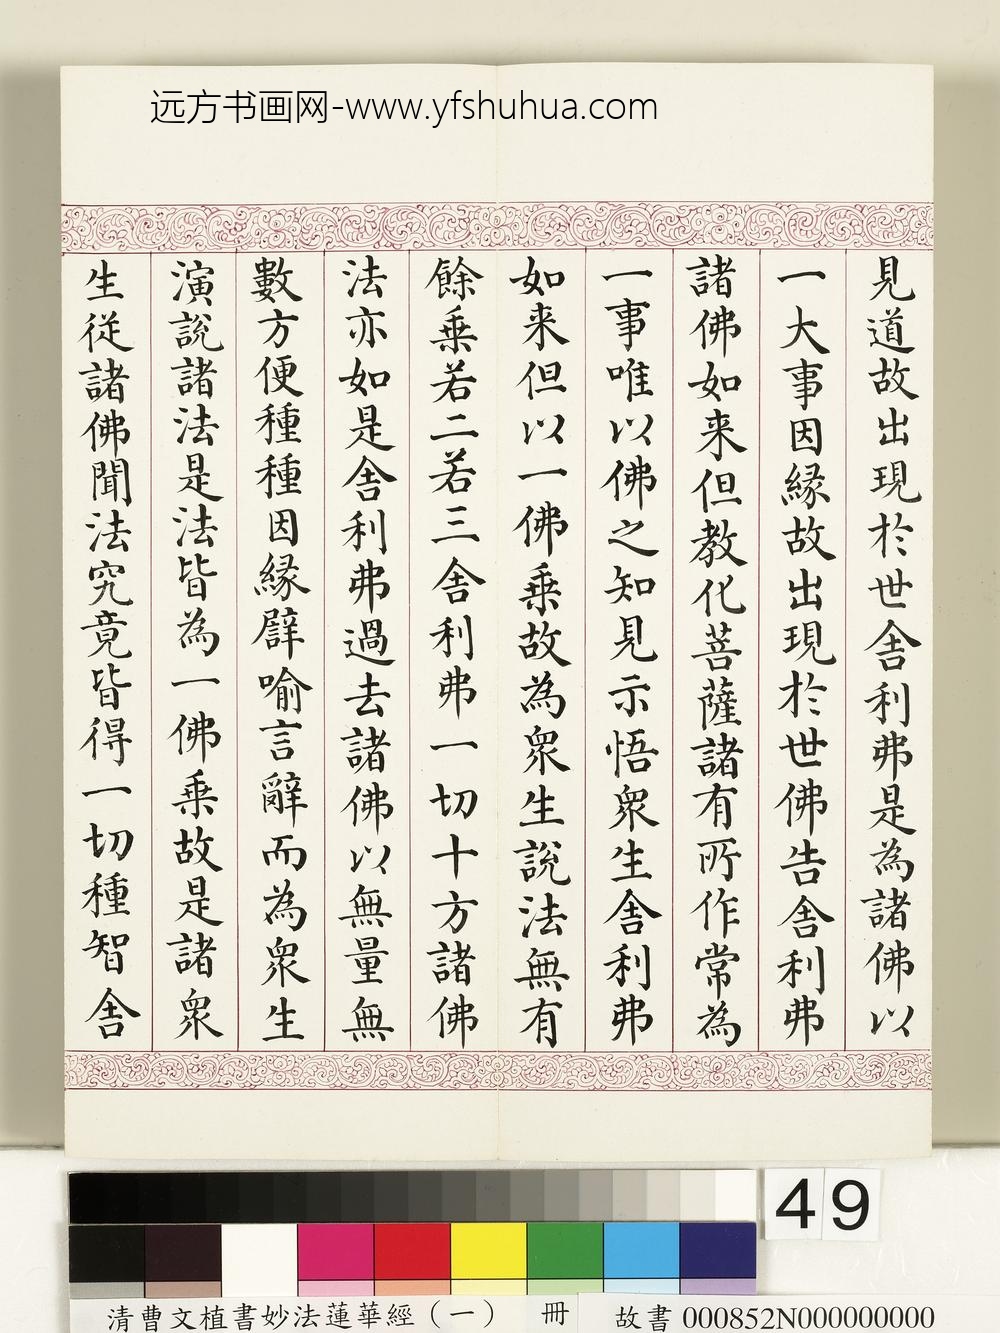 远方书画网-www.yfshuhua.com
見道故出現於世舍利弗是為諸佛以
一大事因緣故出現於世佛告舍利弗
諸佛如来但教化菩薩諸有所作常為
一事唯以佛之知見示悟眾生舍利弗
如来但以一佛乗故為眾生說法無有
餘乗若二若三舍利弗一切十方諸佛
法亦如是舍利弗過去諸佛以無量無
數方便種種因緣譬喻言辭而為眾生
演說諸法是法皆為一佛乗故是諸眾
生從諸佛聞法究竟皆得一切種智舍
49
清曹文植書妙法蓮華經（一） 冊 故書 000852N000000000